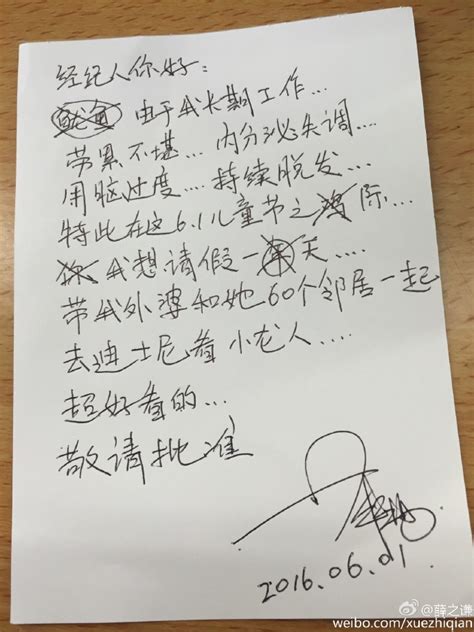 经纪人你好:
由于我长期工作...
劳累不堪... 内分泌失调....
用脑过度.... 持续脱发...
特此在这6.1儿童节之际....
我想请假一天....
带我外婆和她60个邻居一起
去迪士尼看小龙人....
超好看的...
敬请批准
2016.06.01
@薛之谦
weibo.com/xuezhiqian